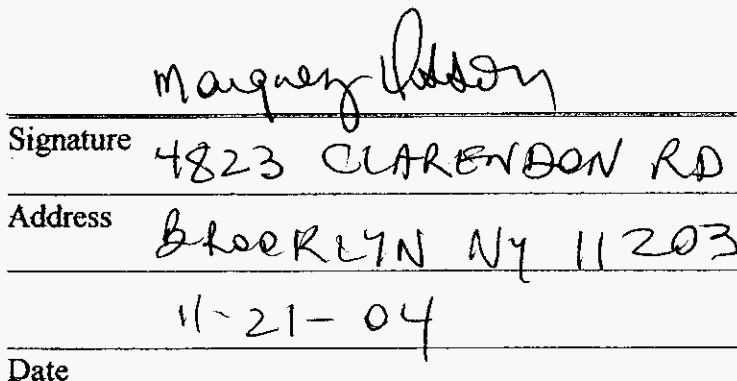 Marquez
Signature 4823 CLARENDON RD
Address BROOKLYN NY 11203
11-21-04
Date